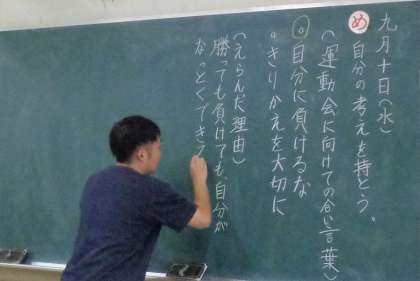 九月十日(水)
め 自分の考えを持とう。
(運動会に向けての合い言葉)
◎自分に負けるな
。きりかえを大切に
(えらんだ理由)
勝っても負けても、自分が
なっとくできる